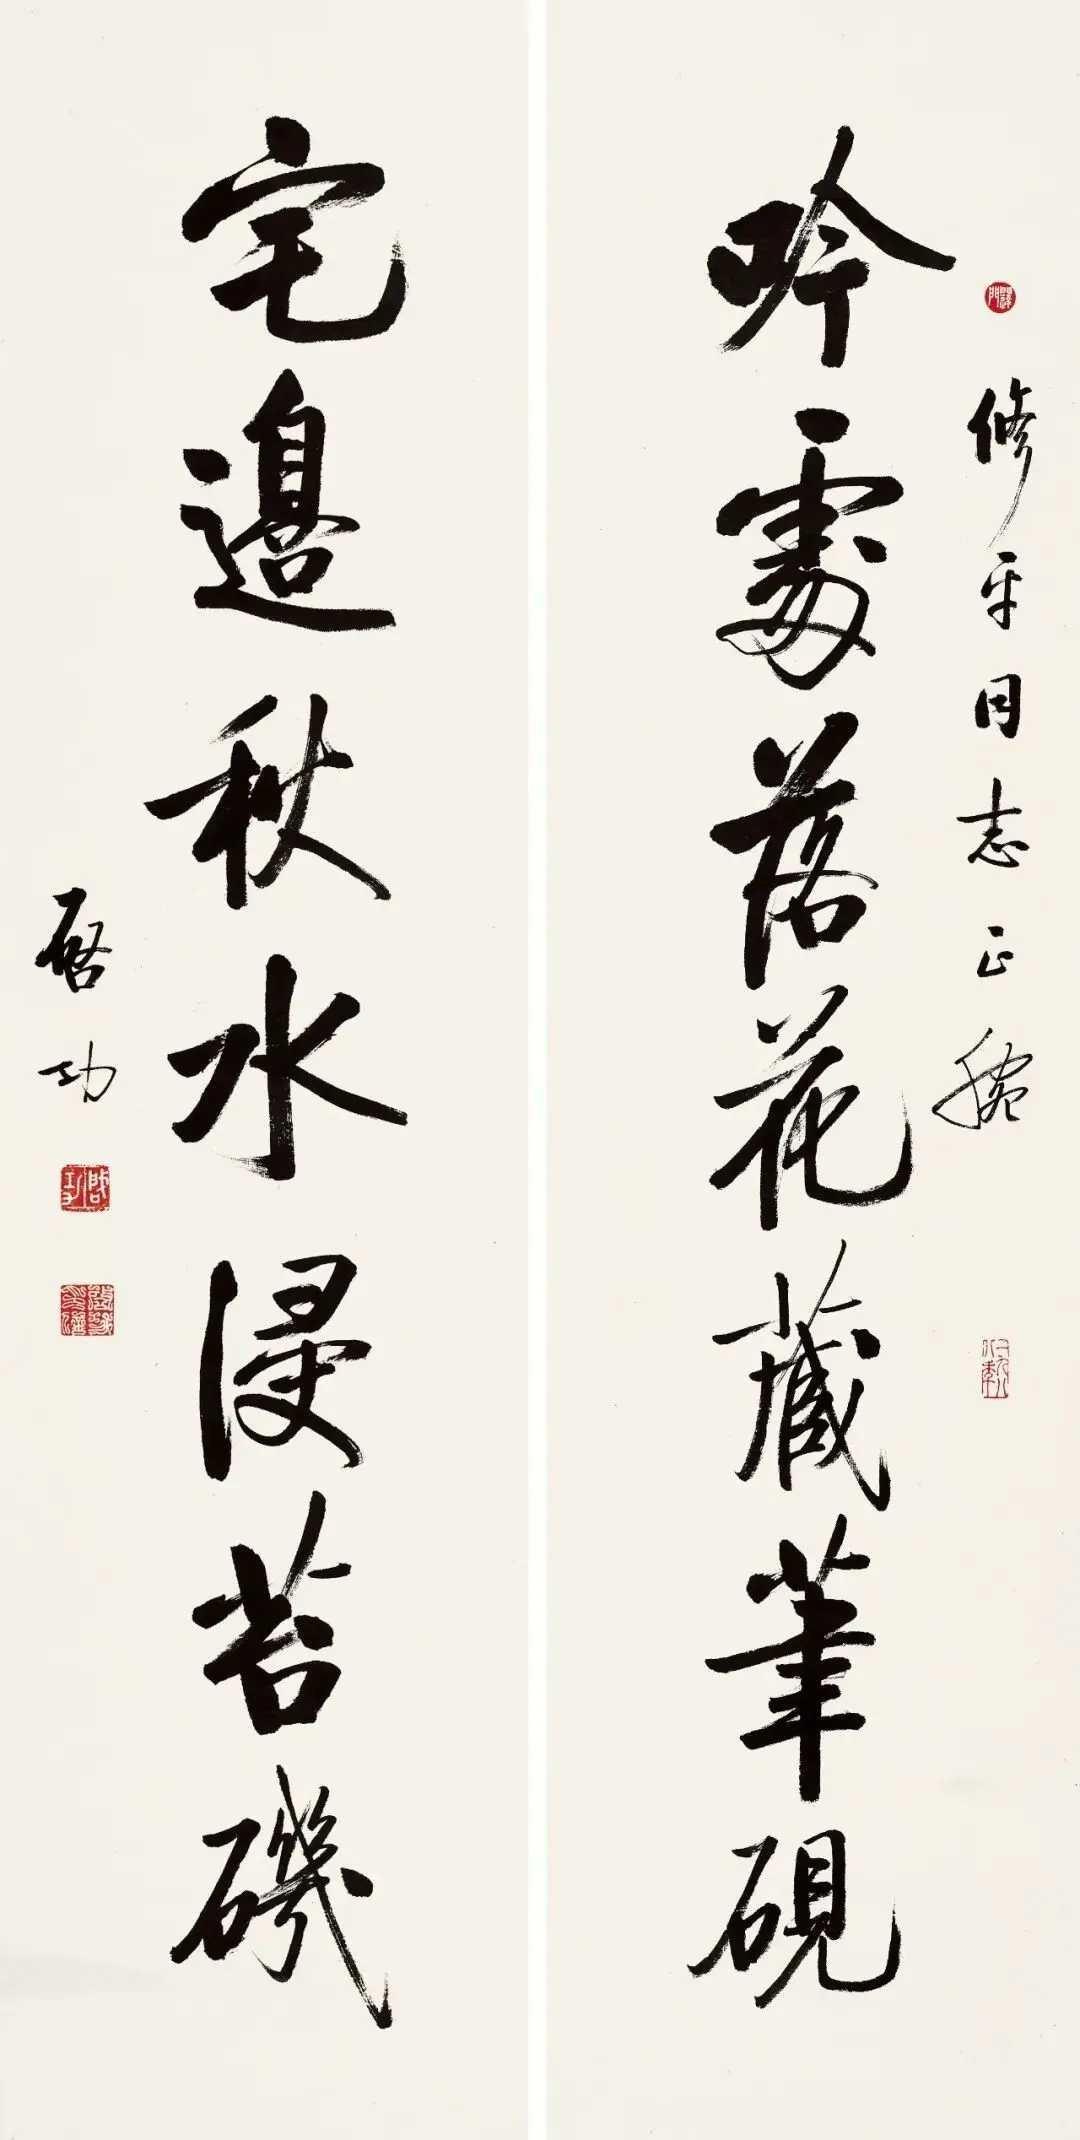 吟處落花藏筆硯
修平同志正腕
宅邊秋水浸苔磯
啟功